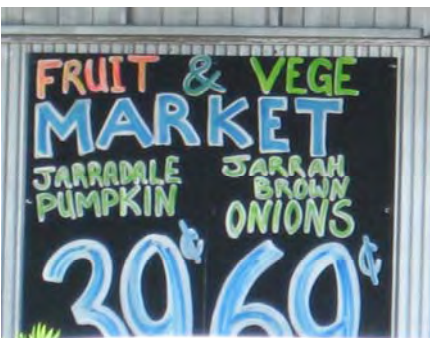 FRUIT & VEGE
MARKET
JARRADALE
PUMPKIN
39¢
JARRAH
BROWN
ONIONS
69¢